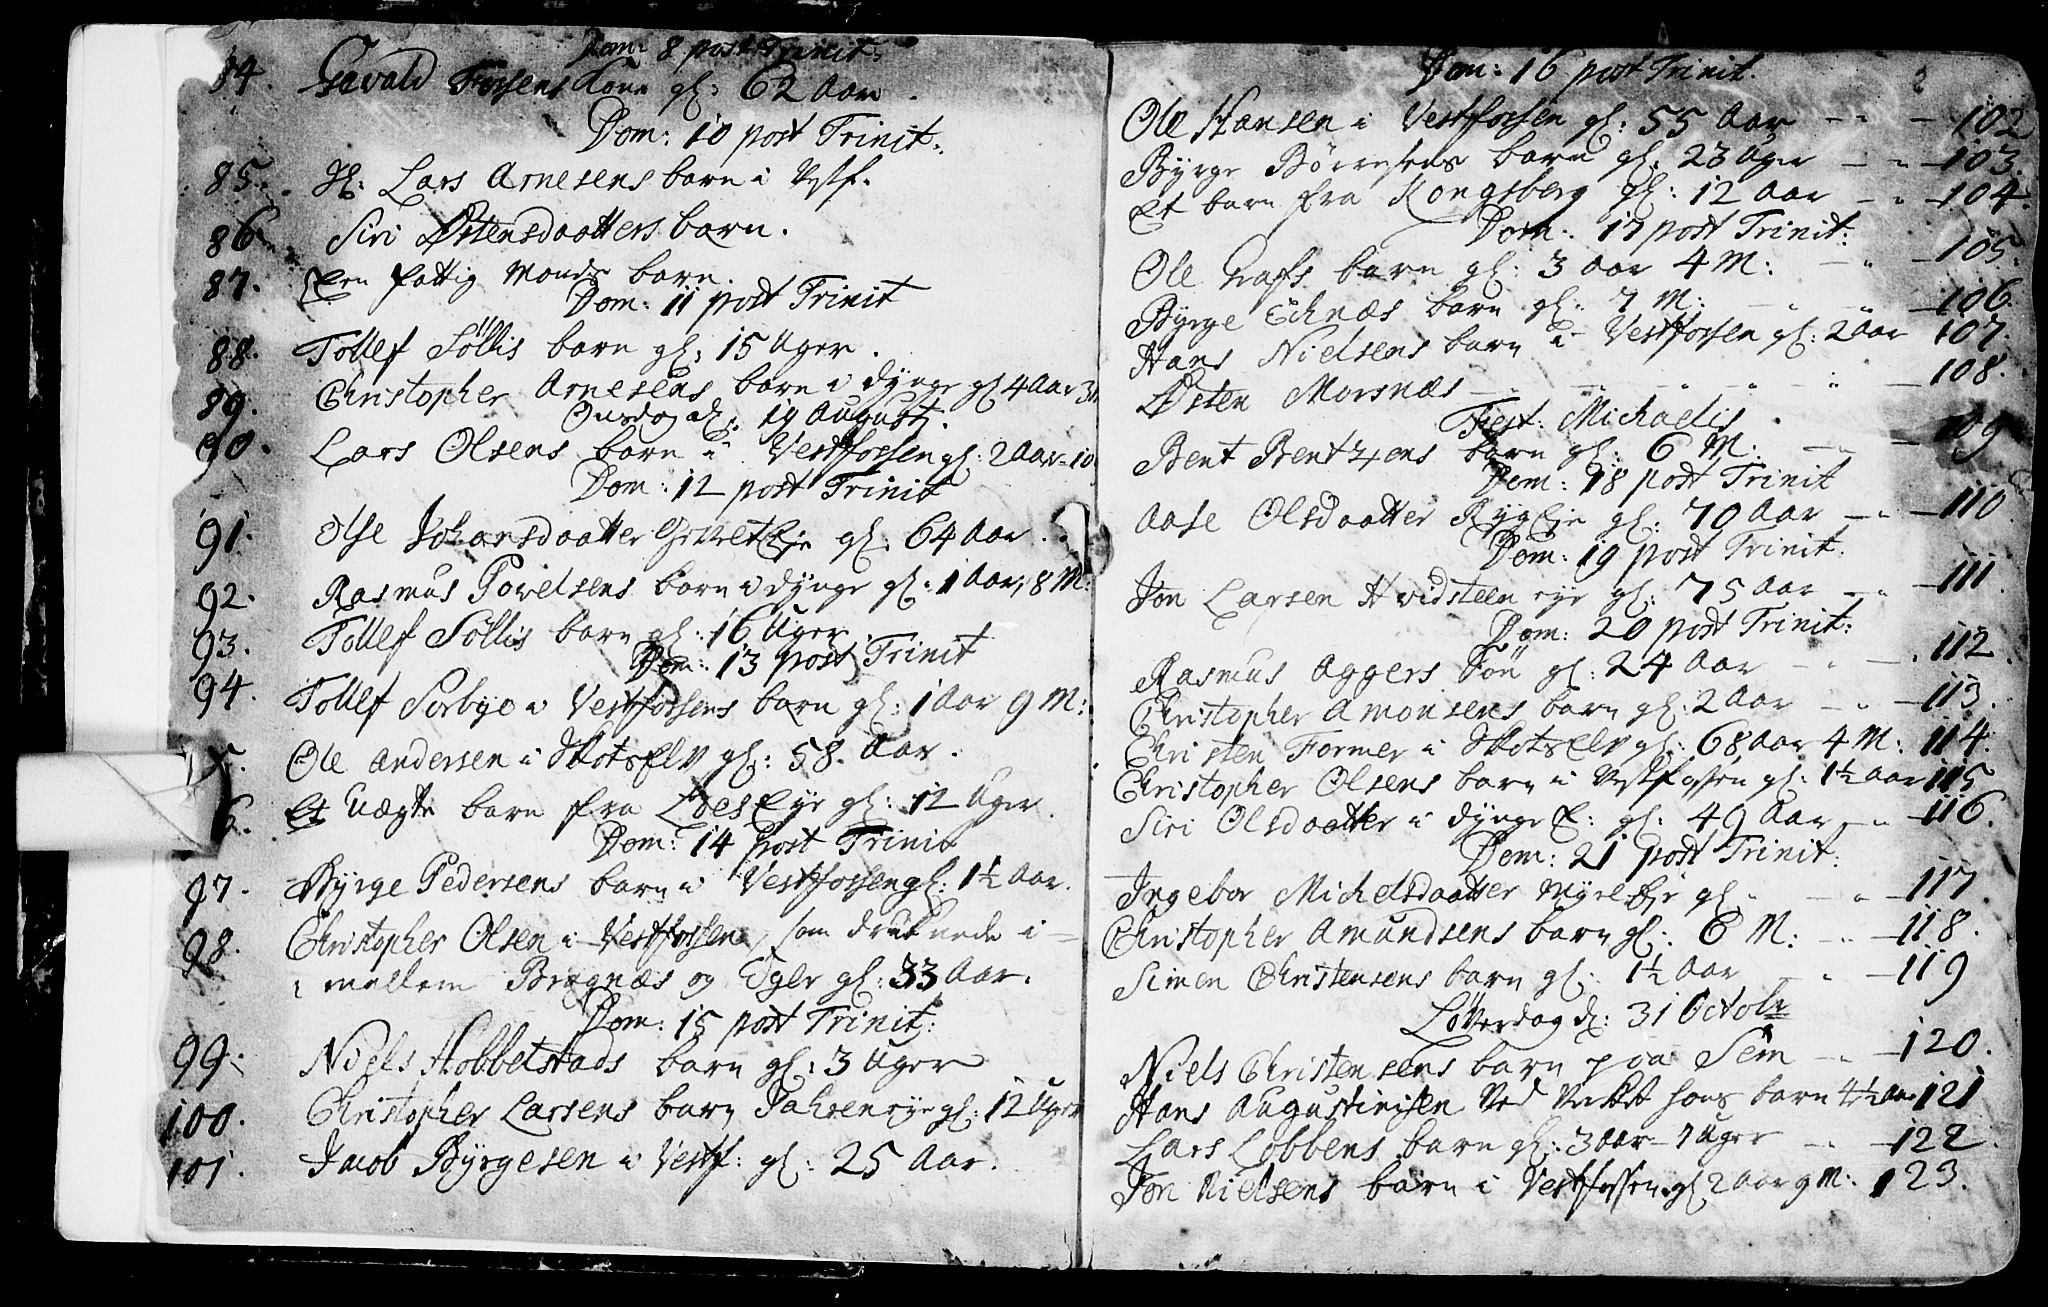 Dom: 8 post Trinit:
84. Gavald Fossens Kone gl: 62 Aar.
Dom: 10 post Trinit:
85. Hr: Lars Arnesens barn i Vestf.
86. Siri Østensdaatters barn.
87. Een fattig Mands barn.
Dom: 11 post Trinit
88. Tollef Söllis barn gl: 15 Uger.
89. Christopher Arnesens barn i dynge gl 4 Aar 3
Onsdag d: 19 August.
90. Lars Olsens barn i Vestfossen gl: 2 Aar 10
Dom: 12 post Trinit
91. Else Johansdaatter Eje gl: 64 Aar.
92. Rasmus Povelsens barn i dynge gl: 1 Aar, 8 M:
93. Tollef Söllis barn gl: 16 Uger.
Dom: 13 post Trinit
94. Tollef Sorbye i Vestfossens barn gl: 1 Aar 9 M:
5. Ole Andersen i Skotselv gl: 58 Aar.
6. Et Uægte barn fra Loes Eye gl: 12 Uger.
Dom: 14 post Trinit
97. Byrge Pedersens barn i Vestfossen gl: 1½ Aar.
98. Christopher Olsen i Vestfossen, som druknede i-
mellem Bragnæs og Eger gl: 33 Aar.
Dom: 15 post Trinit:
99: Niels Hobbelstads barn gl: 3 Uger
100. Christopher Larsens barn eye gl: 12 Uger
101. Jacob Byrgesen i Vestf: gl: 25 Aar.
Dom: 16 post Trinit.
Ole Hansen i Vestfossen gl: 55 Aar - - 102
Byrge Börresens barn gl: 23 Uger - - 103.
Et barn fra Kongsberg gl: 12 Aar - - 104.
Dom: 17 post Trinit:
Ole barn gl: 3 Aar 4 M: - - 105.
Byrge Echnæs barn gl: 7 M: - - 106.
Hans Nielsens barn i Vestfossen gl: 2 Aar 107.
Østen Morsnæs - - - - 108.
Fest: Michaelis.
Bent Bentzens barn gl: 6 M: - - 109
Dom: 18 post Trinit
Aase Olsdaatter Ryg Eje gl: 70 Aar - - 110
Dom: 19 post Trinit:
Jon Larsen Hvidsteen eye gl: 75 Aar - - 111
Dom: 20 post Trinit:
Rasmus Aggers Sön gl: 24 Aar - - 112.
Christopher Amonsens barn gl: 2 Aar - - 113.
Christen Former i Skotselv gl: 68 Aar 4 M: 114.
Christopher Olsens barn i Vestfossen gl: 1½ Aar 115
Siri Olsdaatter i dynge E: gl: 49 Aar - - 116.
Dom: 21 post Trinit:
Ingebor Michelsdaatter Myre Eje gl. - - 117
Christopher Amundsens barn gl: 6 M: - - 118.
Simen Christensens barn gl: 1½ Aar - - 119
Löverdag d: 31 Octobr
Niels Christensens barn paa Sem - - 120.
Hans Augustinisen Ved Verket hans barn 4½ Aar 121
Lars Lobbens barn gl: 3 Aar - 7 Uger - - 122
Jon Nielsens barn i Vestfossen gl 2 Aar 9 M: 123.